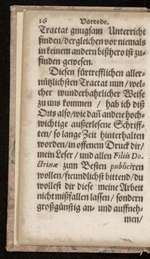 16 Vorrede.
Tractat gnugsam Unterricht
finden/dergleichen vor niemals
in keinem andern bißhero ist zu
finden gewesen.
Diesen fürtrefflichen aller-
nützlichsten Tractat nun / wel-
cher wunderbahrlicher Weise
zu uns kommen / hab ich diß
Orts also/wie daß andere hoch-
wichtige außerlesene Schriff-
ten / so lange Zeit hinterhalten
worden/in offenem Druck dir/
mein Leser / und allen Filiis Do-
ctrinæ zum Besten publiciren
wollen/freundlichst bittend/du
wollest dir diese meine Arbeit
nicht mißfallen lassen / sondern
großgünstig an- und auffneh-
men/